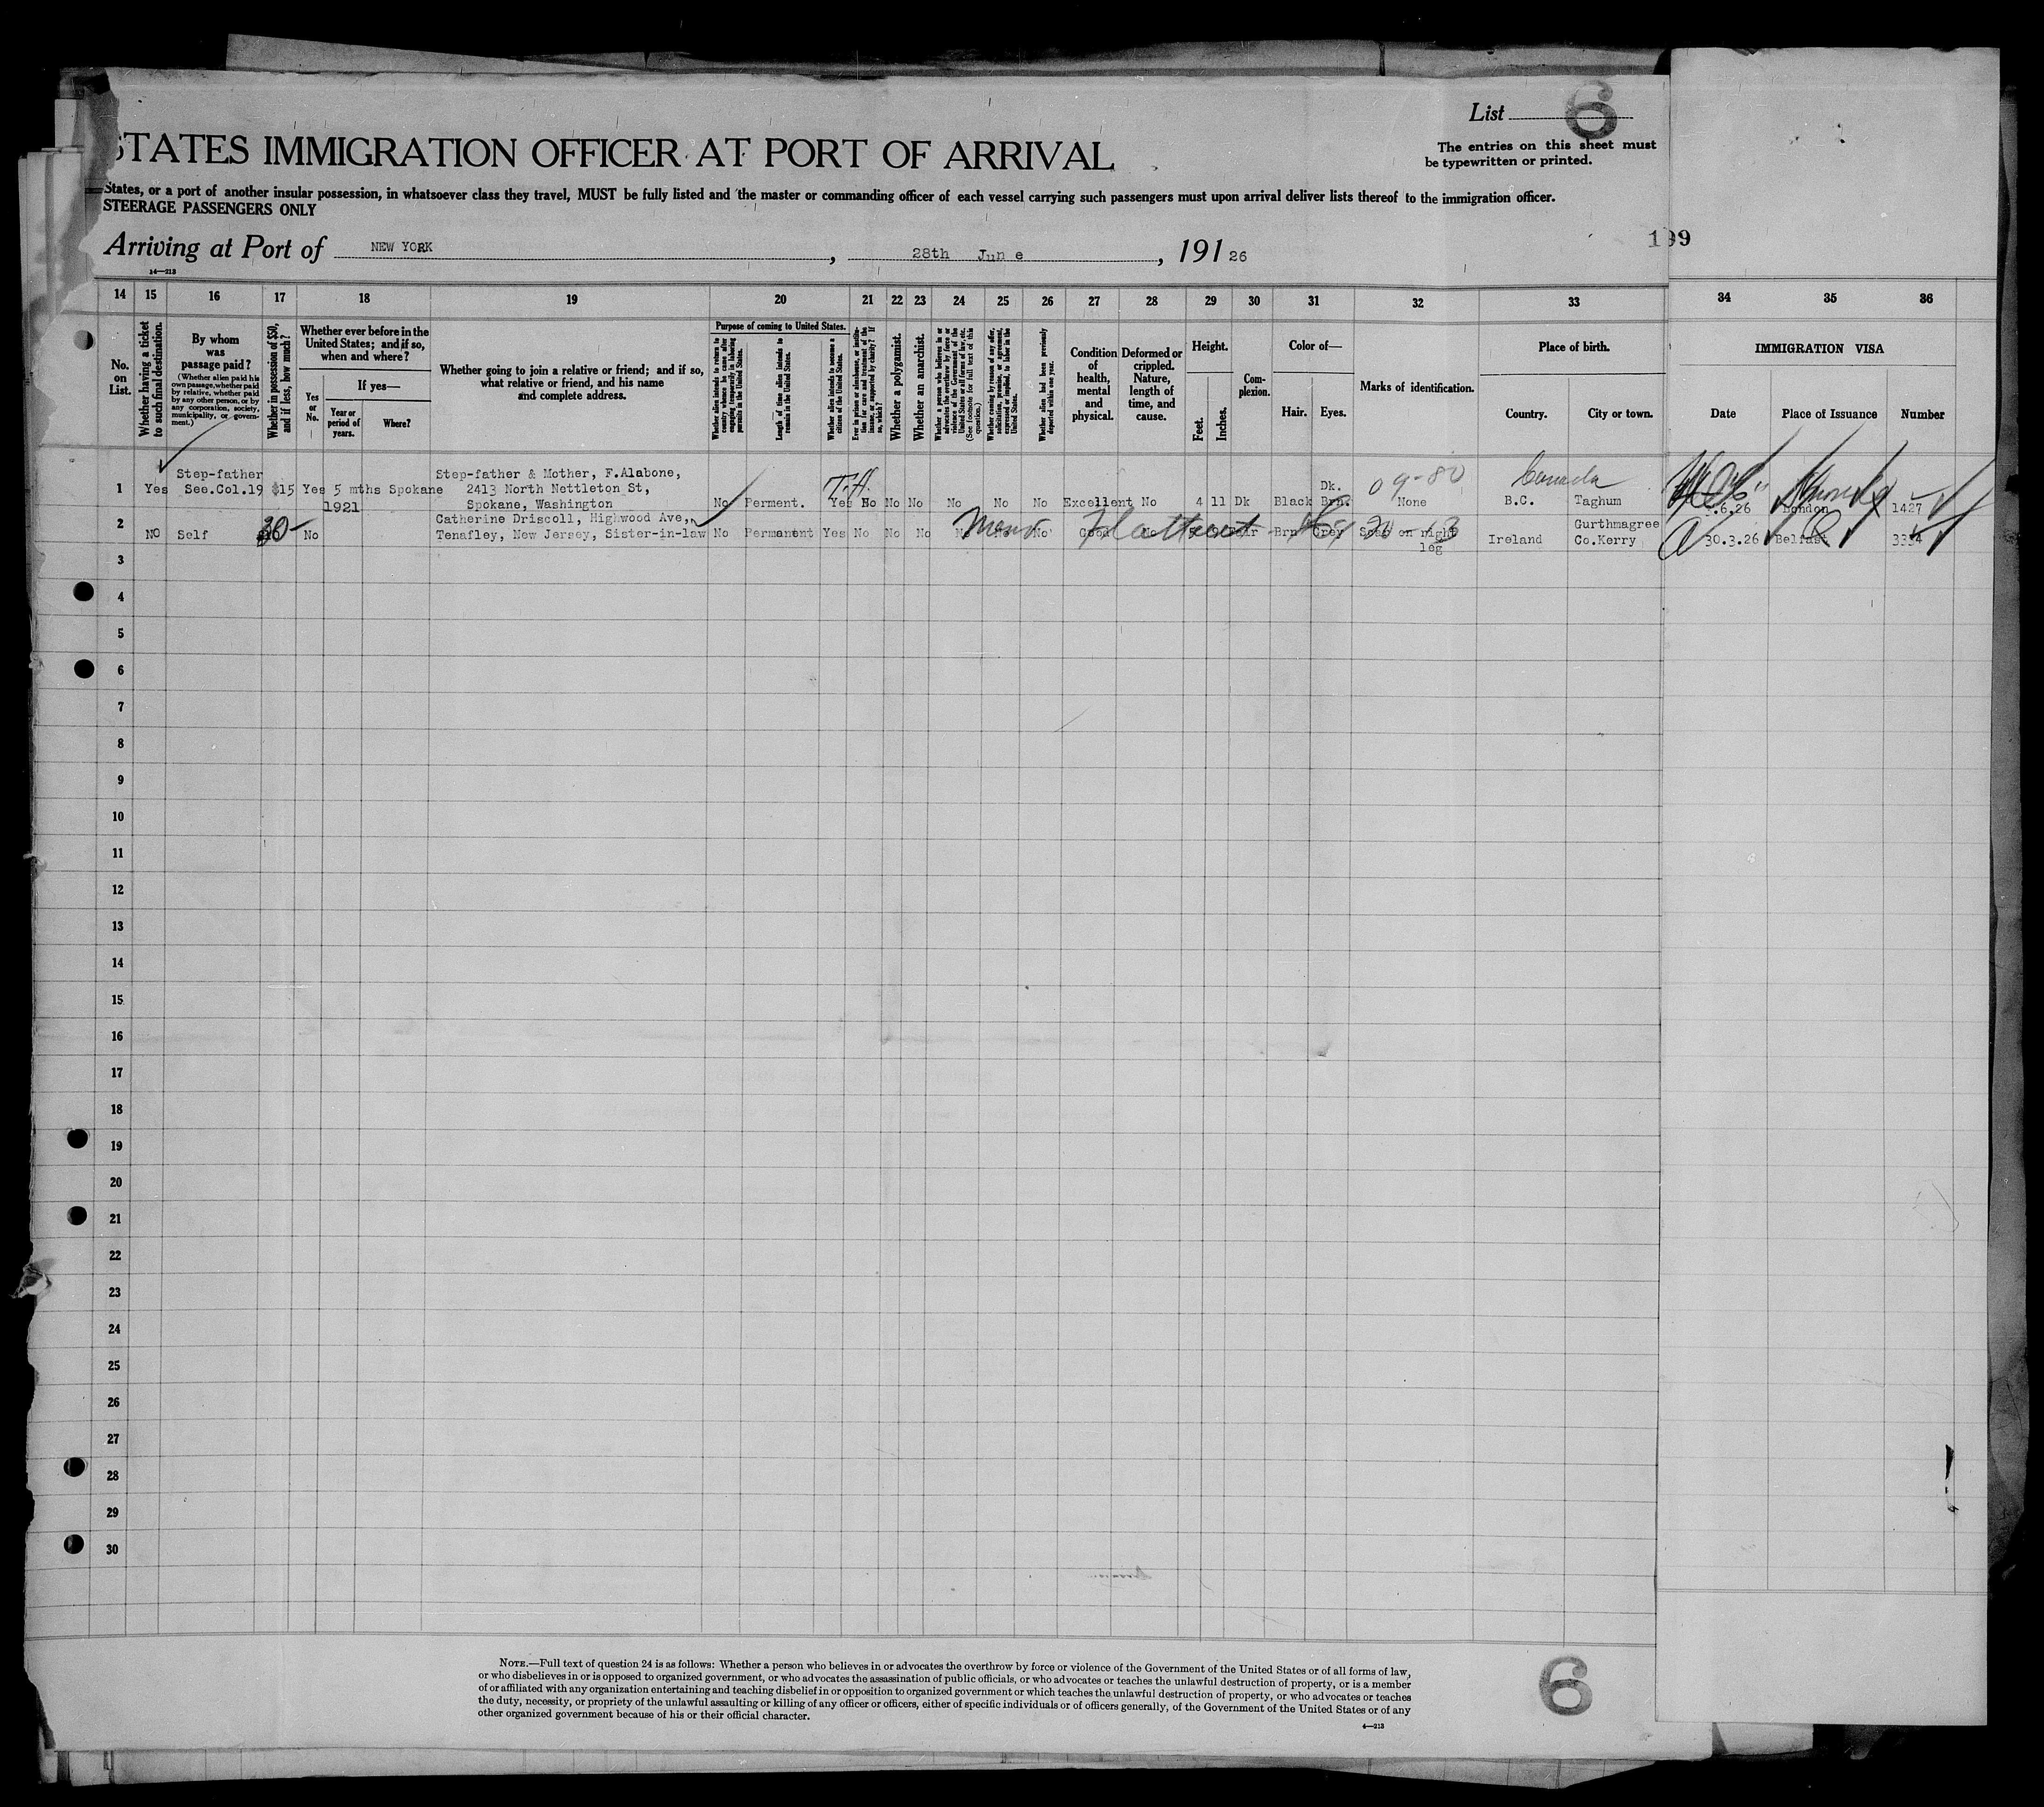 List 6
The entries on this sheet must
be typewritten or printed.
STATES IMMIGRATION OFFICER AT PORT OF ARRIVAL
States, or a port of another insular possession, in whatsoever class they travel, MUST be fully listed and the master or commanding officer of each vessel carrying such passengers must upon arrival deliver lists thereof to the immigration officer.
STEERAGE PASSENGERS ONLY
199
Arriving at Port of NEW YORK, 28th June, 191 26
14—213
14 15 16 17 18 19 20 21 22 23 24 25 26 27 28 29 30 31 32 33 34 35 36
No. on List.
Whether having a ticket to such final destination.
By whom was passage paid?
(Whether alien paid his own passage, whether paid by relative, whether paid by any other person, or by any corporation, society, municipality, or government.)
Whether in possession of $50, and if less, how much?
Whether ever before in the United States; and if so, when and where?
Yes or No.
If yes—
Year or period of years.
Where?
Whether going to join a relative or friend; and if so, what relative or friend, and his name and complete address.
Purpose of coming to United States.
Whether alien intends to return to country whence he came after engaging temporarily in laboring pursuits in the United States.
Length of time alien intends to remain in the United States.
Whether alien intends to become a citizen of the United States.
Ever in prison or almshouse, or institution for care and treatment of the insane, or supported by charity? If so, which?
Whether a polygamist.
Whether an anarchist.
Whether a person who believes in or advocates the overthrow by force or violence of the Government of the United States or all forms of law, etc. (See footnote for full text of this question.)
Whether coming by reason of any offer, solicitation, promise, or agreement, expressed or implied, to labor in the United States.
Whether alien had been previously deported within one year.
Condition of health, mental and physical.
Deformed or crippled. Nature, length of time, and cause.
Height.
Feet. Inches.
Complexion.
Color of—
Hair. Eyes.
Marks of identification.
Place of birth.
Country. City or town.
IMMIGRATION VISA
Date Place of Issuance Number
Step-father Step-father & Mother, F.Alabone, Dk. 09-80 Canada
1 Yes See.Col.19 $15 Yes 5 mths Spokane 2413 North Nettleton St,
1921 Spokane, Washington No Perment. Yes No No No No No No Excellent No 4 11 Dk Black Brn. None B.C. Taghum .6.26 London 1427
2 Catherine Driscoll, Highwood Ave, Gurthmagree
NO Self 30- No Tenafley, New Jersey, Sister-in-law No Permanent Yes No No No No No No Good Brn Grey on right leg Ireland Co.Kerry 30.3.26 Belfast
3
4
5
6
7
8
9
10
11
12
13
14
15
16
17
18
19
20
21
22
23
24
25
26
27
28
29
30
NOTE.—Full text of question 24 is as follows: Whether a person who believes in or advocates the overthrow by force or violence of the Government of the United States or of all forms of law,
or who disbelieves in or is opposed to organized government, or who advocates the assassination of public officials, or who advocates or teaches the unlawful destruction of property, or is a member
of or affiliated with any organization entertaining and teaching disbelief in or opposition to organized government or which teaches the unlawful destruction of property, or who advocates or teaches
the duty, necessity, or propriety of the unlawful assaulting or killing of any officer or officers, either of specific individuals or of officers generally, of the Government of the United States or of any
other organized government because of his or their official character.
4—213
6